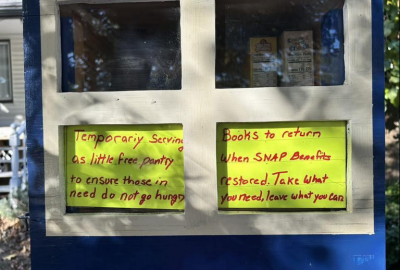 Temporariy Serving
as little free pantry
to ensure those in
need do not go hungry
Books to return
when SNAP Benefits
restored. Take what
you need, leave what you can